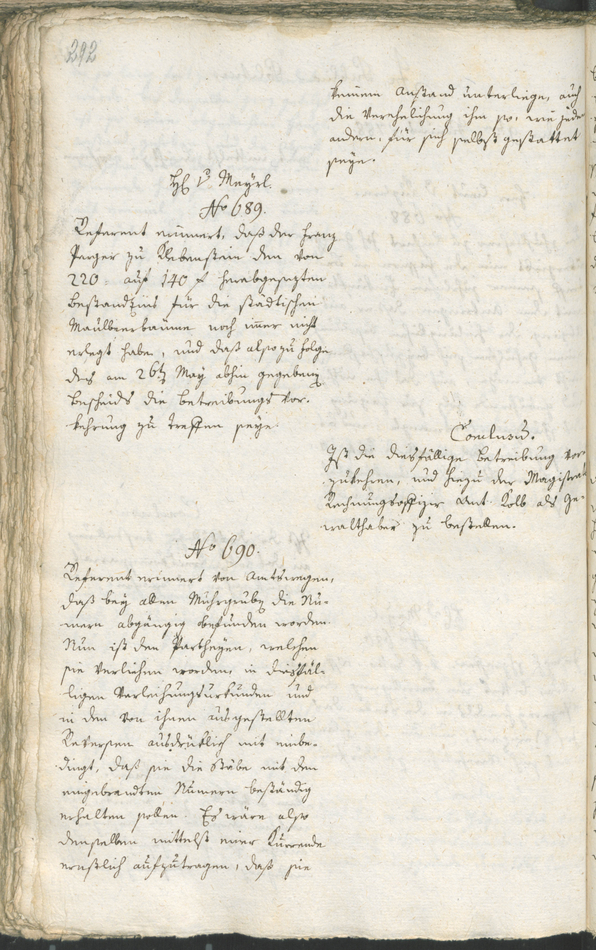 292
keinem Anstand unterliege, auch
die Verehelichung ihm so, wie jede
andern, für sich selbst gestattet
seye.
H. v. Meyrl.
No 689.
Referent erinnert, daß der Franz
Perger zu Rebenstein den von
220 auf 140 f herabgesezten
Bestandzins für die städtischen
Maulbeerbäume noch immer nicht
erlegt habe, und daß also zu folge
des am 26ten May abhin gegebenen
Bescheids die Betreibungs Vor-
kehrung zu treffen seye.
Conclusum.
Ist die diesfällige Betreibung vor-
zukehren, und hiezu der Magistrats
Rechnungsoffizier Ant. Kolb als Ge-
walthaber zu bestellen.
No 690.
Referent erinnert von Amtswegen,
daß bey allen Muhrgruben die Nu-
mern abgängig befunden worden.
Nun ist den Partheyen, welchen
sie verliehen worden, in diesfäl-
ligen Verleihungsurkunden und
in den von ihnen ausgestellten
Reversen ausdrüklich mit einbe-
dingt, daß sie die Stäbe mit den
eingebrandten Numern beständig
erhalten sollen. Es wäre also
denselben mittelst einer Kurrende
ernstlich aufzutragen, daß sie